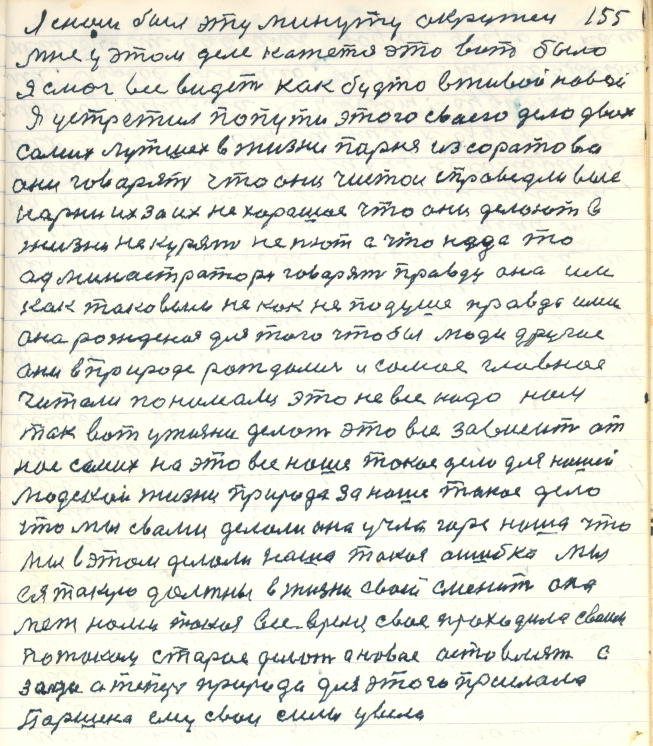 Я ними был эту минуту окружен 155
мне у этом деле кажетя это вот было
я смог все видет как будто в живой новой
Я устретил попути этого своего дело двох
самих лутшех в жизни парня из соратова
они говарят что они чистои справедливые
парни их за их не харашое что они делоют в
жизни не курят не пют а что нада то
админастратори говарят правду она им
как таковым не кок не подуше правда ими
она рожденоя для того чтобы люди другие
ани в природе рождалися и самое главное
читали понимали это не все надо ном
так вот у жизни делот это все зависит от
нас самих на это все наше токое дело для нашей
людской жизни природа за наше такое дело
что мы свами делоли она учла горе наша что
мы в этом делали наша такая ошибка мы
ея такую должны в жизни своей сменит она
меж нами токоя все время свое проходила своим
потоком старое делот а новое оставлят с
зади а теперь природа для этого прислала
Паршека ему свои сили увела